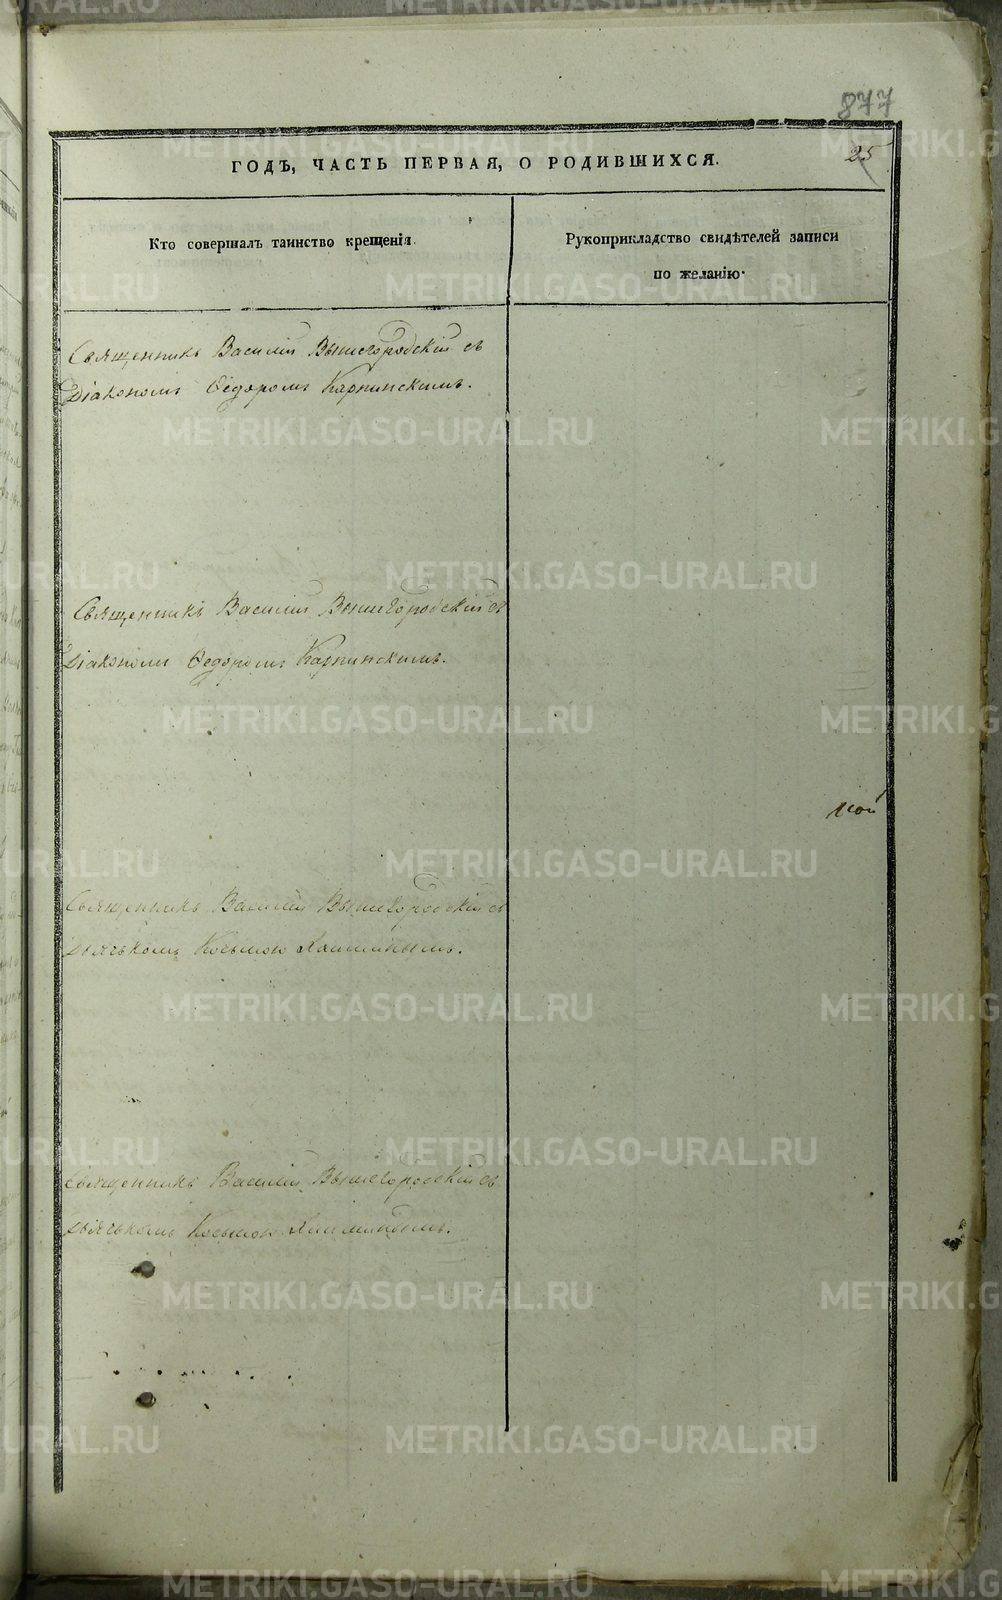 877
25
ГОДЪ, ЧАСТЬ ПЕРВАЯ, О РОДИВШИХСЯ.
Кто совершалъ таинство крещенія.
Рукоприкладство свидѣтелей записи
по желанію.
Священникъ Василій Вышегородскій съ
Діакономъ Ѳедоромъ Карпинскимъ.
Священникъ Василій Вышегородскій съ
Діакономъ Ѳедоромъ Карпинскимъ.
Священникъ Василій Вышегородскій съ
Дьячькомъ Косьмою
Священникъ Василій Вышегородскій съ
Дьячькомъ Косьмою
METRIKI.GASO-URAL.RU